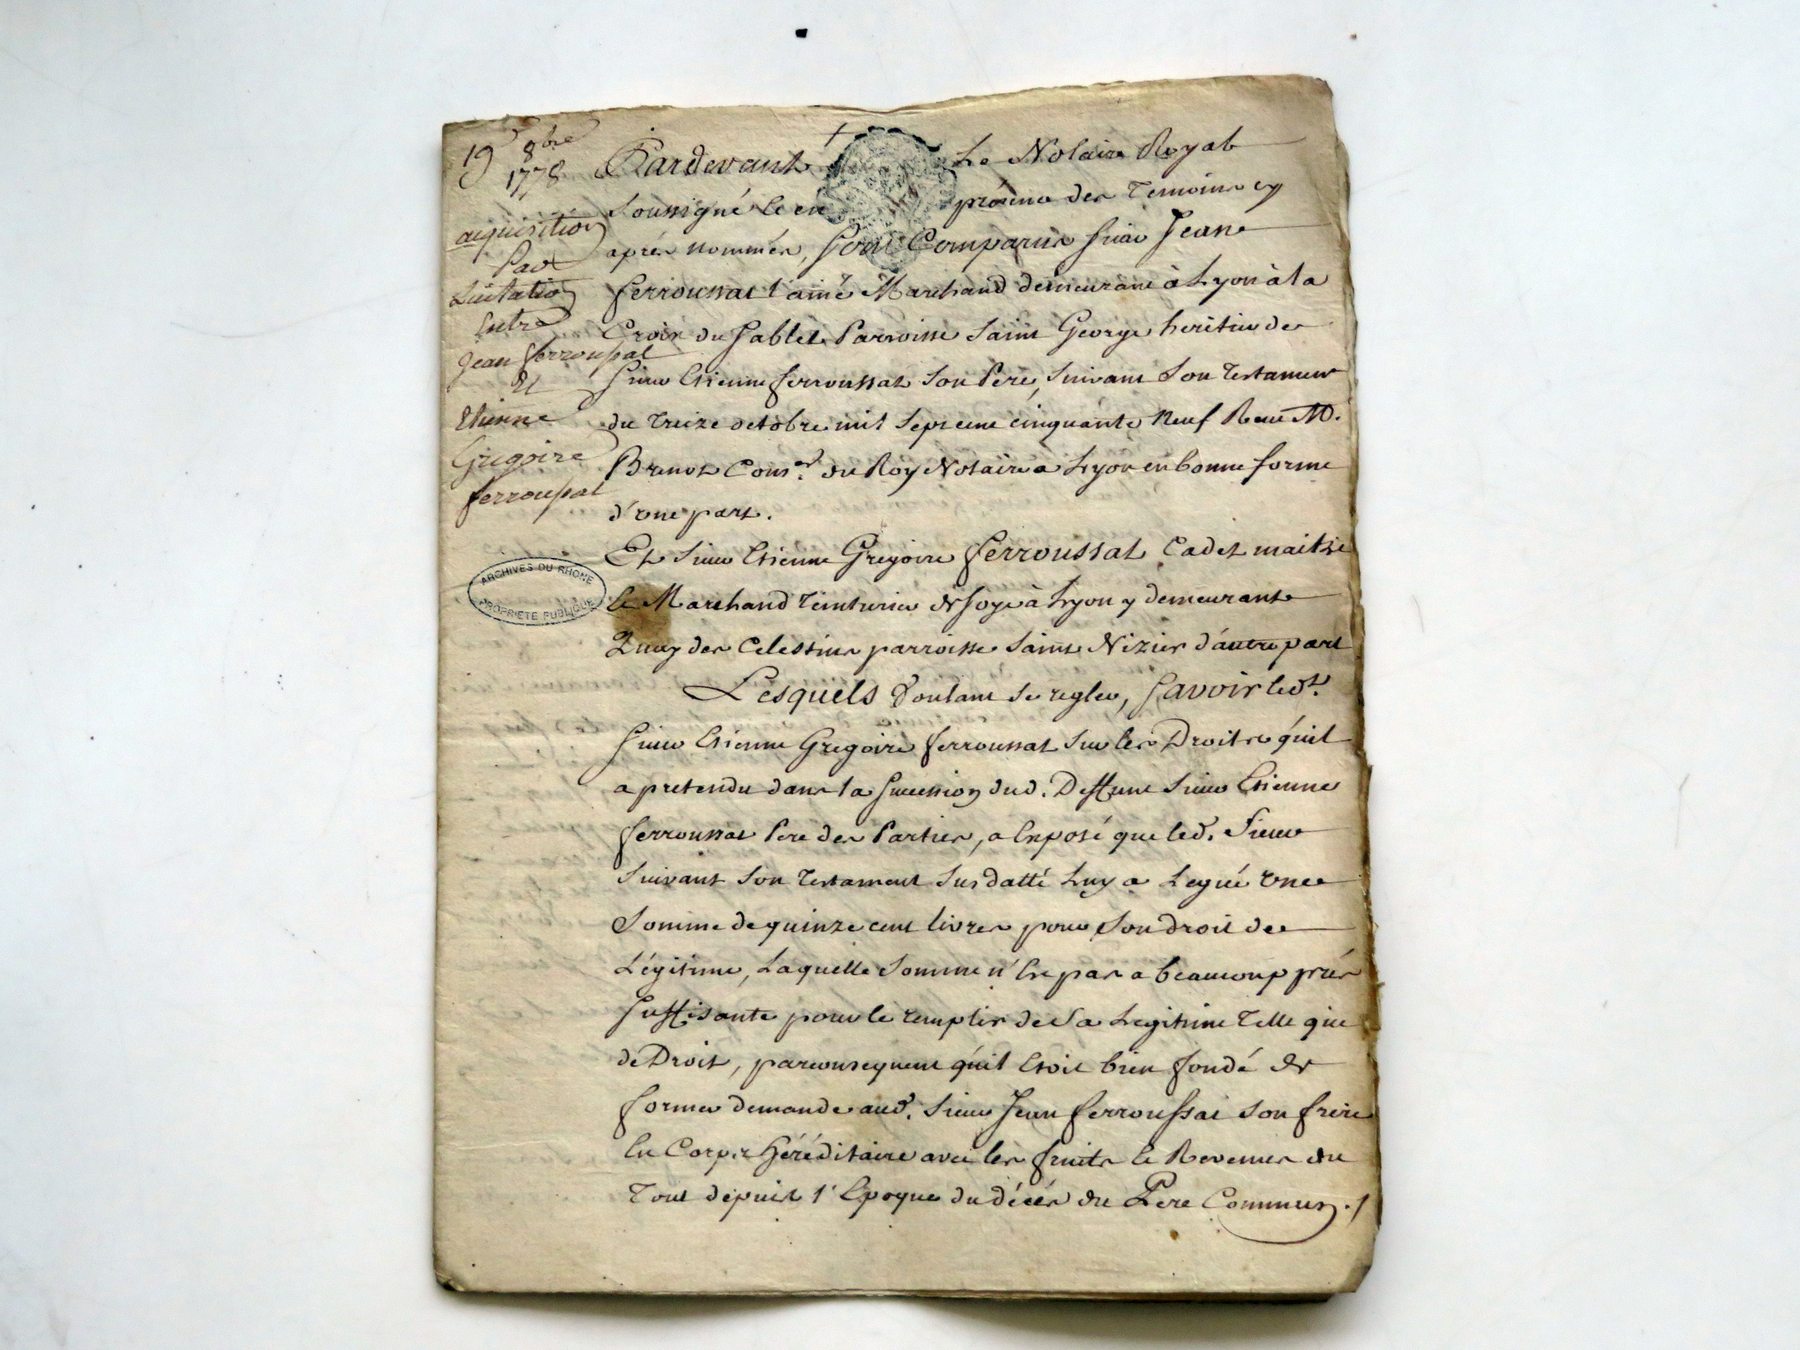 19 8bre
1778
acquisition
Par
Licitation
Entre
Jean ferroussat
Et
Etienne
Gregoire
ferroussat
ARCHIVES DU RHONE
PROPRIETE PUBLIQUE
Pardevant Le Notaire Royal
soussigné & en présence des Temoins cy
après nommés, sont Comparus sieur Jean
ferroussat l'ainé Marchand demeurant à Lyon à la
Croix du sablet Parroisse saint George heritier de
sieur Etienne ferroussat son Pere, suivant son Testament
du treize octobre mil sept cent cinquante Neuf Recu M.
Cons.er du Roy Notaire a Lyon en bonne forme
d'une part.
Et sieur Etienne Gregoire ferroussat Cadet maitre
& Marchand teinturier de soye à Lyon y demeurant
Quay des Celestins parroisse saint Nizier d'autre part
Lesquels Voulant se regler, savoir led.t
sieur Etienne Gregoire ferroussat sur les Droits qu'il
a pretendu dans la succession dud. Deffunt sieur Etienne
ferroussat Pere des Parties, a Exposé que led. sieur
suivant son testament susdatté Luy a Legué une
somme de quinze cent livres pour son droit de
Légitime, Laquelle somme n'Est pas a beaucoup près
suffisante pour le remplir de sa Legitime Telle que
de Droit, parconsequent qu'il Etoit bien fondé de
former demande aud. sieur Jean ferroussat son frere
En Corps Héréditaire avec les fruits & Revenus du
Tout depuis l'Epoque du décés du Pere Commun. /